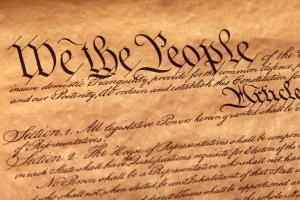 We the People of the
insure domestic Tranquility, provide for the common defence,
and our Posterity, do ordain and establish this Constitution for
Article
Section. 1. All legislative Powers herein granted shall be
of Representatives.
Section. 2. The House of Representatives shall be composed
in each State shall have the Qualifications requisite for Electors of the
No Person shall be a Representative who shall not have
and who shall not, when elected, be an Inhabitant of that State in